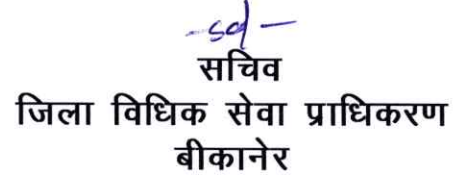 -sd-
सचिव
जिला विधिक सेवा प्राधिकरण
बीकानेर